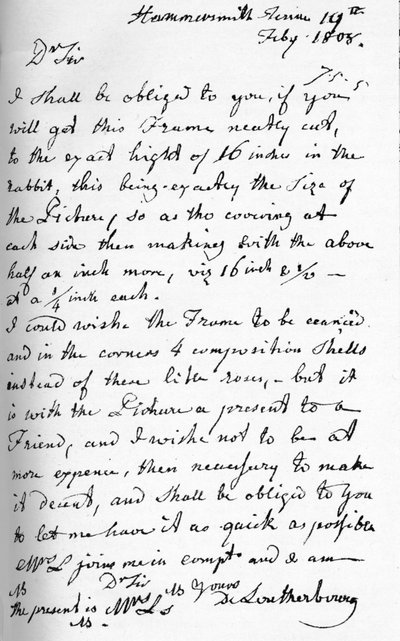 Hammersmith Terrace 19th
Feby 1805.
Dr Sir
I shall be obliged to you, if you
will get this Frame neatly cut,
to the exact hight of 16 inches in the
rabbit, this being exactly the Size of
the Picture, so as the covering at
each side then making with the above
half an inch more, viz 16 inch & 1/2 —
at a 1/4 inch each.
I could wishe the Frame to be
and in the corners 4 composition Shells
instead of these little roses, – but it
is with the Picture a present to a
Friend, and I wishe not to be at
more expence, then necessary to make
it decent, and shall be obliged to you
to let me have it as quick as possible
Mrs L joins me in compts and I am
Dr Sir Yours
the present is Mrs Ls De Loutherbourg